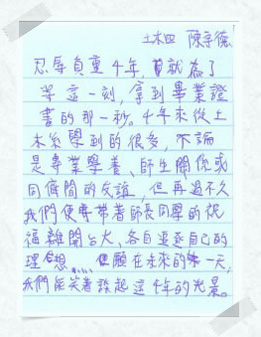 土木四 陳宇德
忍辱負重4年,就為了
等這一刻,拿到畢業證
書的那一秒。4年來從土
木系學到的很多,不論
是專業學養、師生關係或
同儕間的友誼,但再過不久
我們便要帶著師長同學的祝
福離開台大、各自追逐自己的
理想....,但願在未來的某一天,
我們能笑著談起這4年的光景。